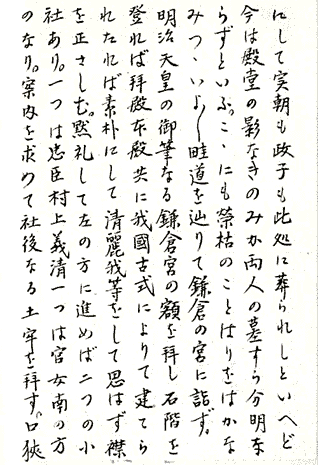 にして実朝も政子も此処に葬られしといへど
今は殿堂の影なきのみか両人の墓すら分明な
らずといふ。こゝにも榮枯のことはりをはかな
みつゝいよ〳〵畦道を辿りて鎌倉の宮に詣ず。
明治天皇の御筆なる鎌倉宮の額を拜し石階を
登れば拜殿本殿共に我國古式によりて建てら
れたれば素朴にして清麗我等をして思はず襟
を正さしむ。黙礼して左の方に進めば二つの小
社あり。一つは忠臣村上義清一つは宮女南の方
のなり。案内を求めて社後なる土牢を拜す。口狹